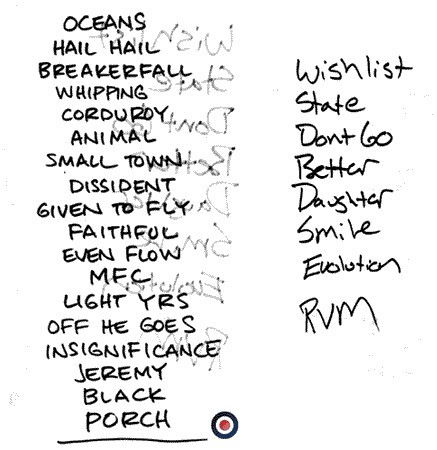 OCEANS
HAIL HAIL
BREAKERFALL
WHIPPING
CORDUROY
ANIMAL
SMALL TOWN
DISSIDENT
GIVEN TO FLY
FAITHFUL
EVEN FLOW
MFC
LIGHT YRS
OFF HE GOES
INSIGNIFICANCE
JEREMY
BLACK
PORCH
Wishlist
State
Dont Go
Better
Daughter
Smile
Evolution
RVM